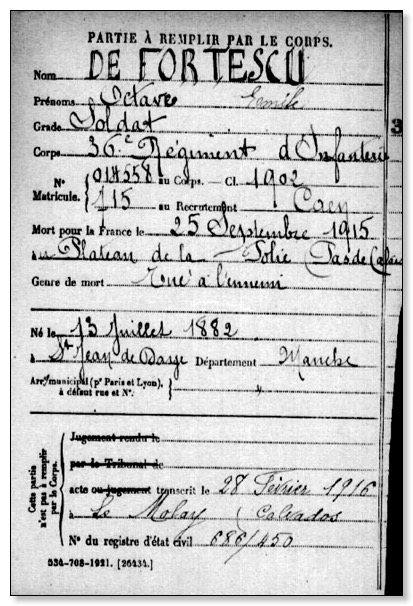 PARTIE À REMPLIR PAR LE CORPS.
Nom DE FORTESCU
Prénoms Octave Emile
Grade Soldat
3
Corps 36e Régiment d'Infanterie
N° Matricule. { 014558 au Corps. — Cl. 1902
115 au Recrutement Caen
Mort pour la France le 25 Septembre 1915
au Plateau de la Folie (Pas de Calais
Genre de mort Tué à l'ennemi
Né le 13 Juillet 1882
à St Jean de Daye Département Manche
Arrt municipal (pr Paris et Lyon), à défaut rue et N°. { "
Cette partie n'est pas à remplir par le Corps.
Jugement rendu le
par le Tribunal de
acte ou jugement transcrit le 28 Février 1916
à Le Molay (Calvados
N° du registre d'état civil 686/450
534-708-1921. [26434.]